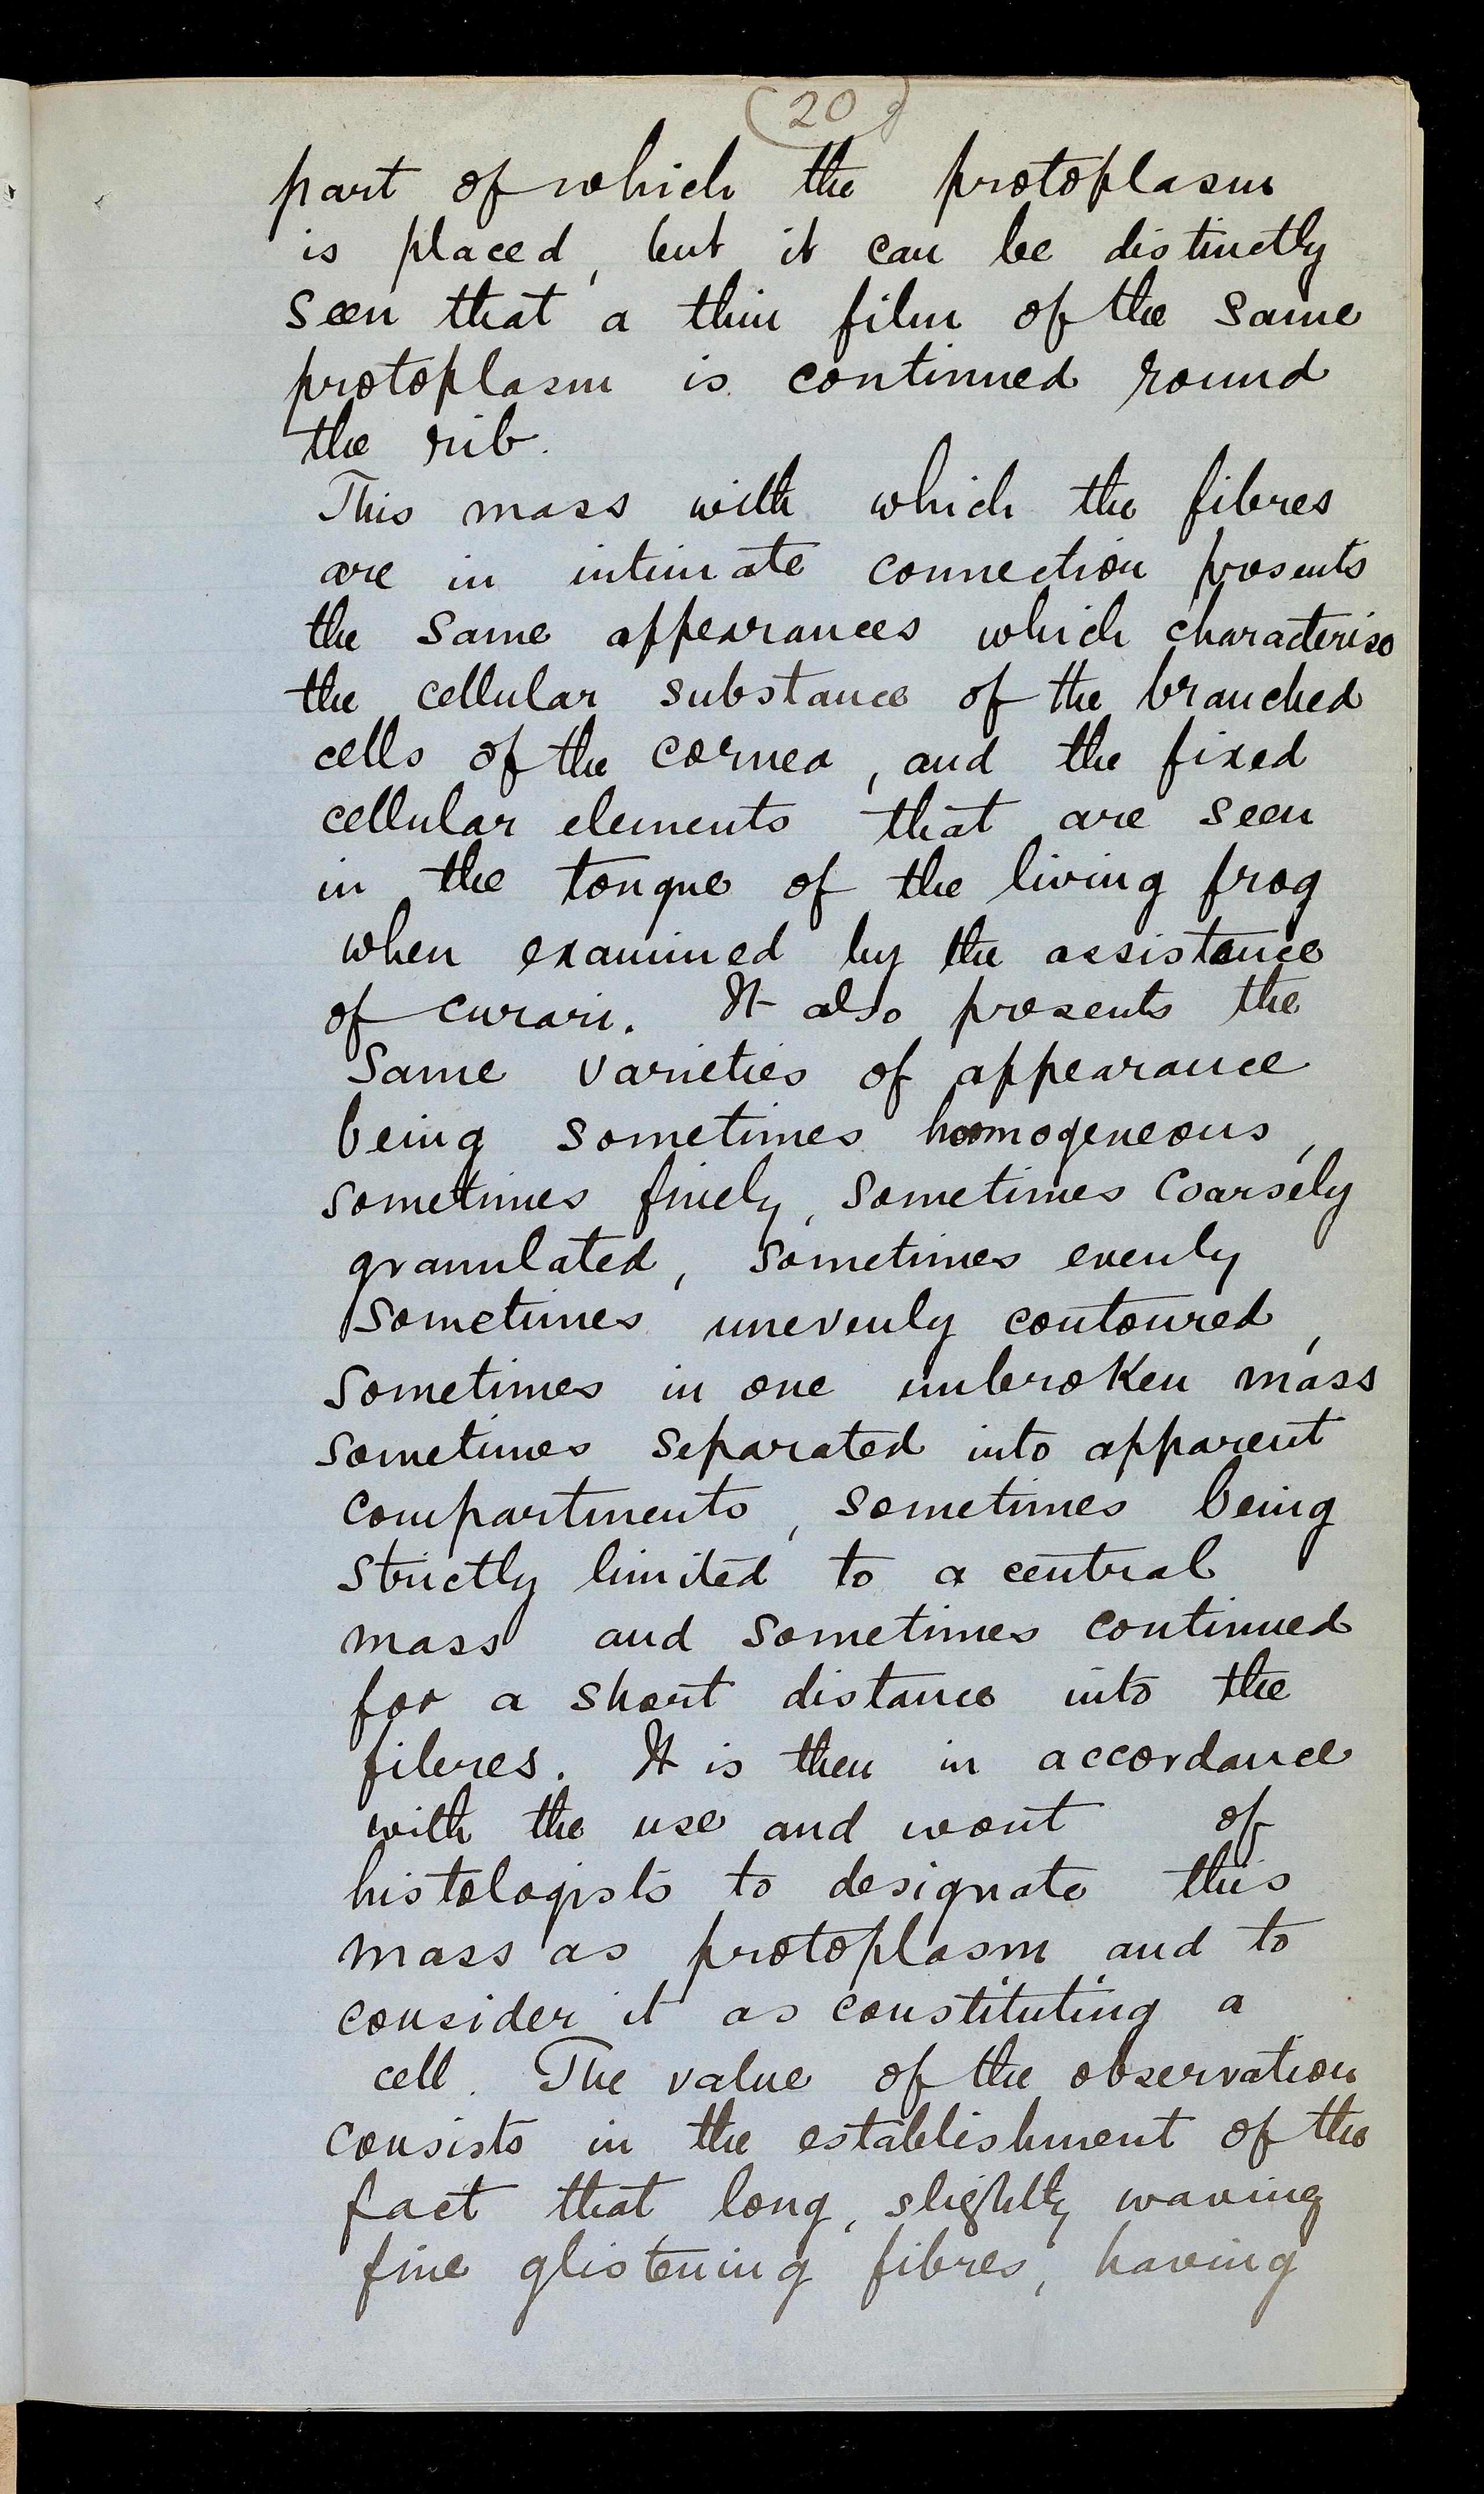 (20)
part of which the protoplasm
is placed, but it can be distinctly
seen that a thin film of the same
protoplasm is continued round
the rib.
This mass with which the fibres
are in intimate connection presents
the same appearances which characterise
the cellular substance of the branched
cells of the cornea, and the fixed
cellular elements that are seen
in the tongue of the living frog
when examined by the assistance
of curari. It also presents the
same varieties of appearance
being sometimes homogeneous,
sometimes finely, sometimes coarsely
granulated, sometimes evenly
sometimes unevenly contoured,
sometimes in one unbroken mass
sometimes separated into apparent
compartments, sometimes being
strictly limited to a central
mass and sometimes continued
for a short distance into the
fibres. It is then in accordance
with the use and wont of
histologists to designate this
mass as protoplasm and to
consider it as constituting a
cell. The value of the observation
consists in the establishment of the
fact that long, slightly waving
fine glistening fibres, having